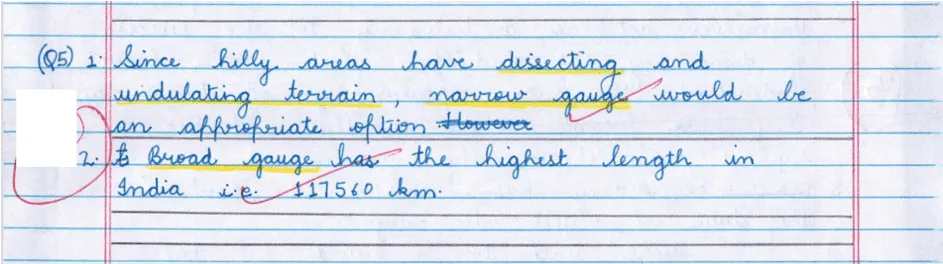 (Q5) 1. Since hilly areas have dissecting and
undulating terrain, narrow gauge would be
an appropriate option However
2. Broad gauge has the highest length in
India i.e. 117560 km.